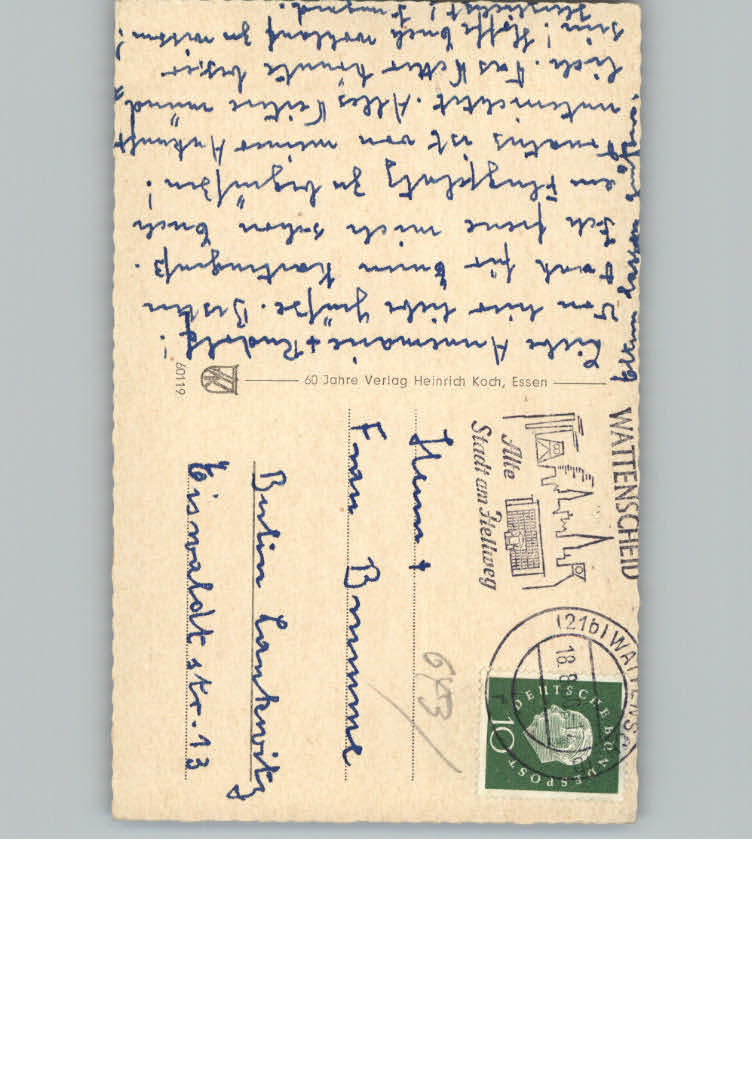 Liebe Annemarie + Rudolf!
Von hier liebe Grüße. Besten
Dank für Euren Kartengruß.
Ich freue mich schon Euch
am Flugplatz zu begrüßen!
ist von meiner Ankunft
unterrichtet. Alles Weitere münd-
lich. Das Wetter könnte besser
sein! Hoffe Euch wohlauf zu wissen!
Herzlichst!
60 Jahre Verlag Heinrich Koch, Essen
60119
WATTENSCHEID
Alte
Stadt am Hellweg
(21b) WATTENSC
18.8
DEUTSCHE BUNDESPOST
10
Herrn +
Frau Brumme
Berlin Lankwitz
Eiswaldt str. 13